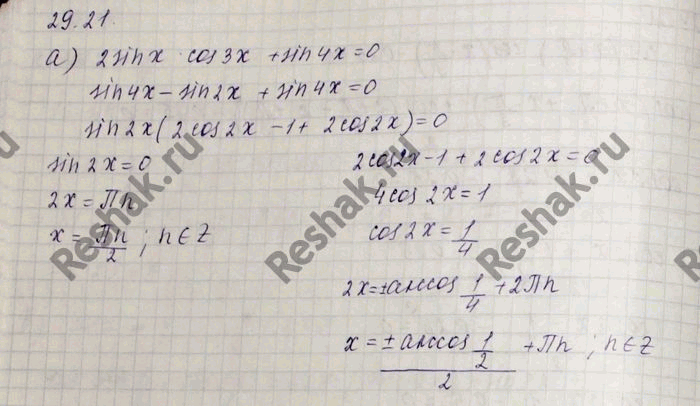 29.21.
а) 2sinx · cos3x + sin4x = 0
sin4x − sin2x + sin4x = 0
sin2x(2cos2x − 1 + 2cos2x) = 0
sin2x = 0
2x = Пn
x = Пn/2 ; n ∈ Z
2cos2x − 1 + 2cos2x = 0
4cos2x = 1
cos2x = 1/4
2x = ± arccos 1/4 + 2Пn
x = ± arccos 1/2 / 2 + Пn ; n ∈ Z
Reshak.ru
Reshak.ru
Reshak.ru